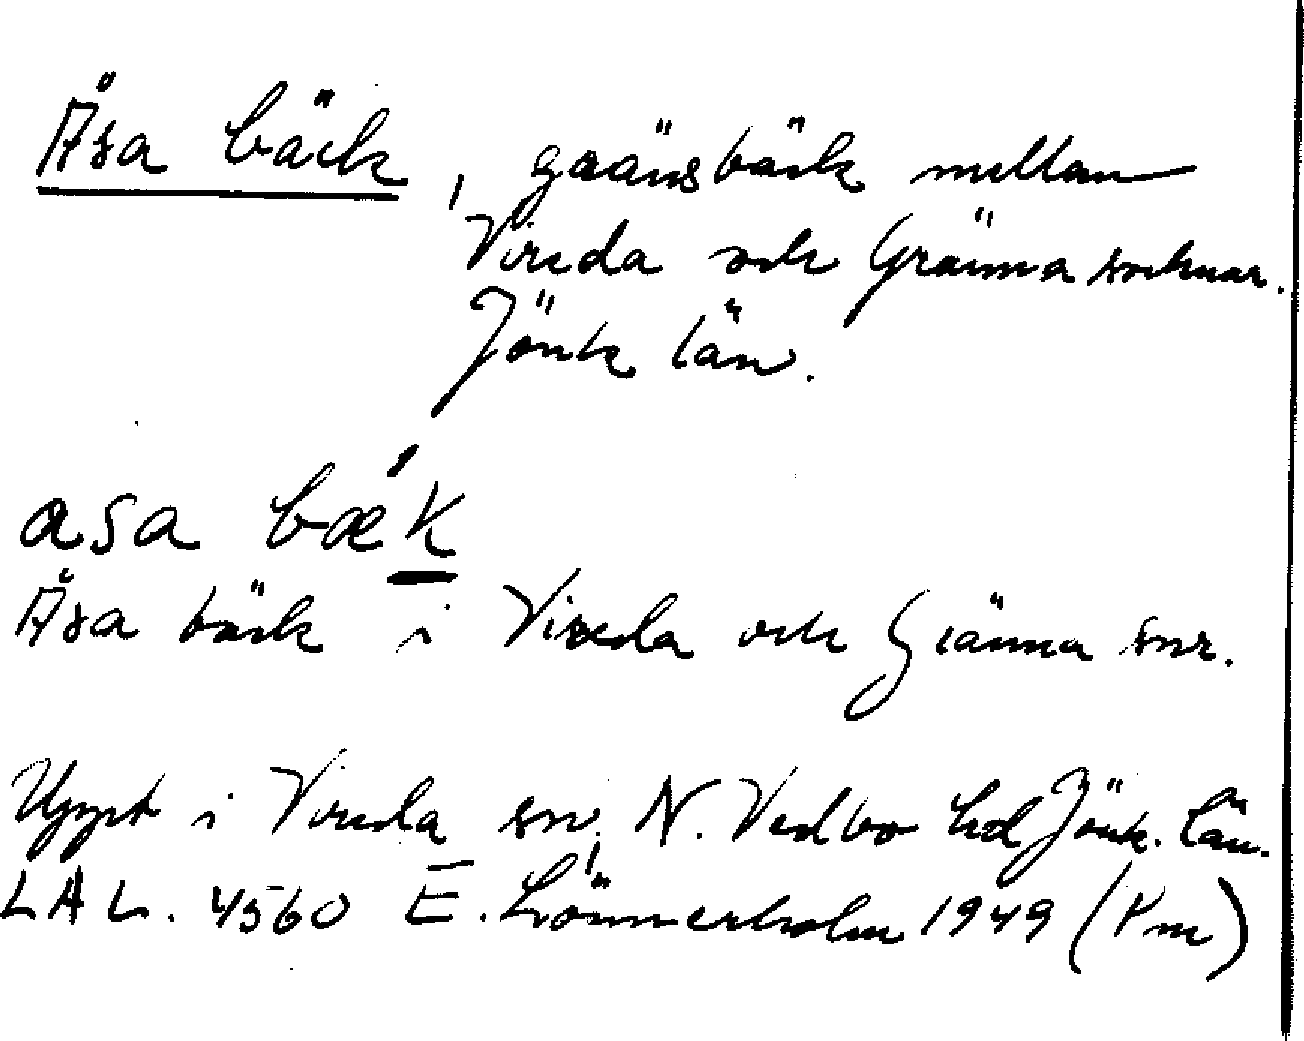 Åsa bäck, gränsbäck mellan
Vireda och Gränna socknar.
Jönk län.
asa bæ´k
Åsa bäck i Vireda och Gränna snr.
Uppt i Vireda sn, N. Vedbo hd, Jönk. län.
LAL. 4560 E. Lönnerholm 1949 (Vm)